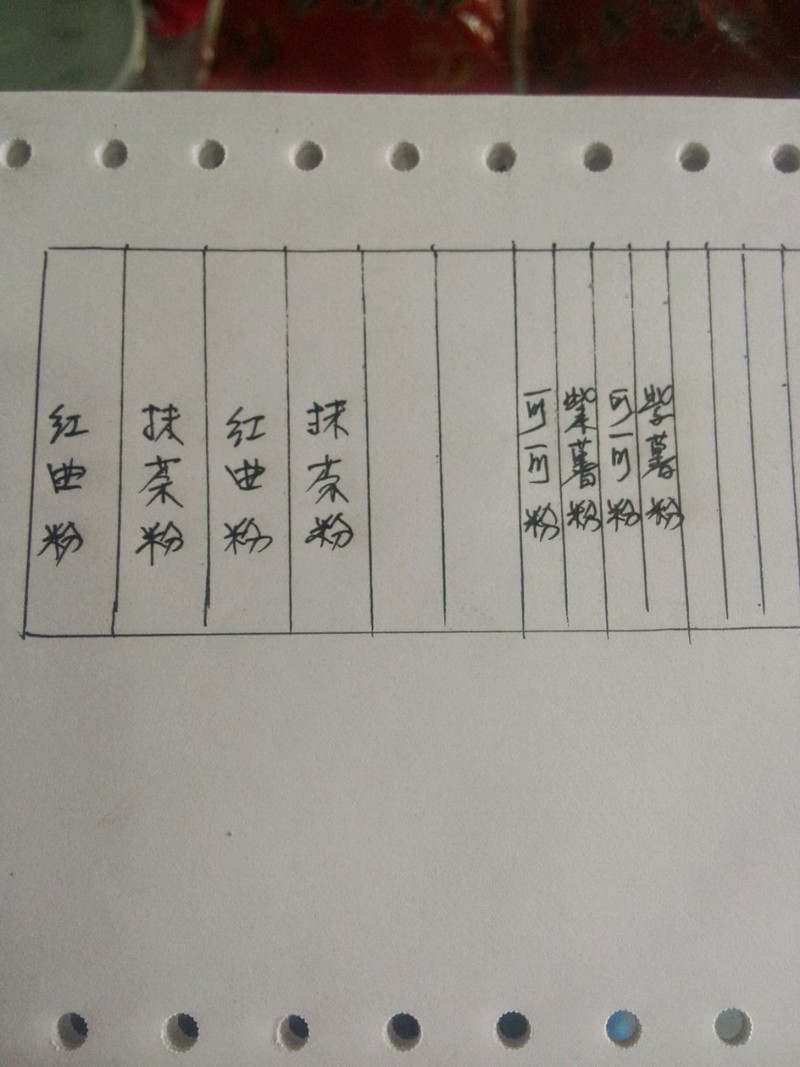 红曲粉
抹茶粉
红曲粉
抹茶粉
可可粉
紫薯粉
可可粉
紫薯粉